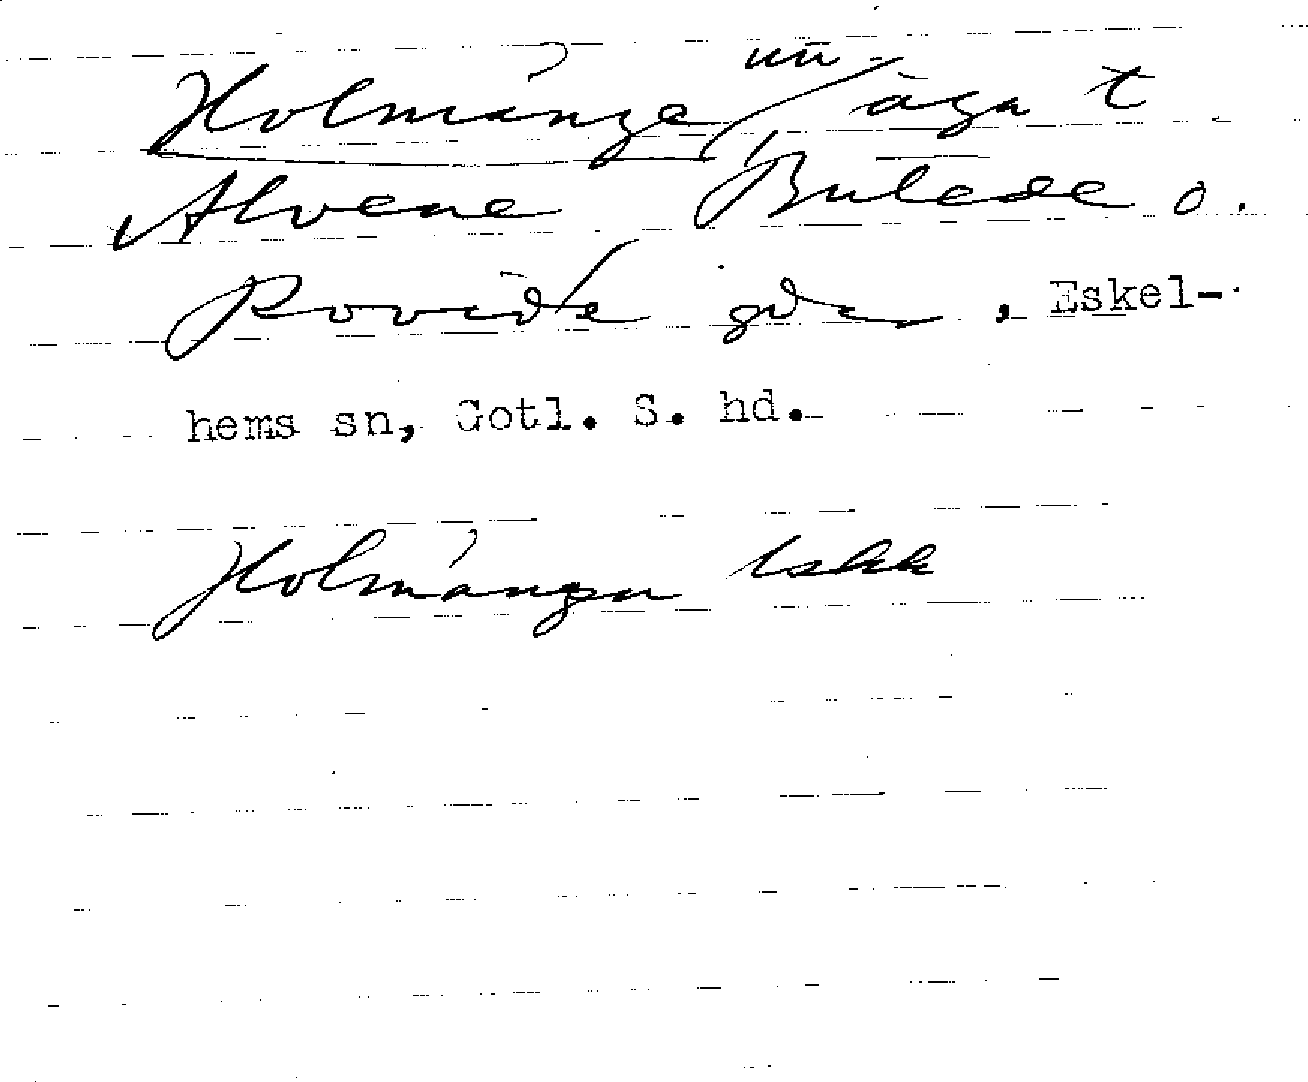 Holmänge äga t
Alvene Bulede o.
Rovide gdr, Eskel-
hems sn, Gotl. S. hd.
Holmängu